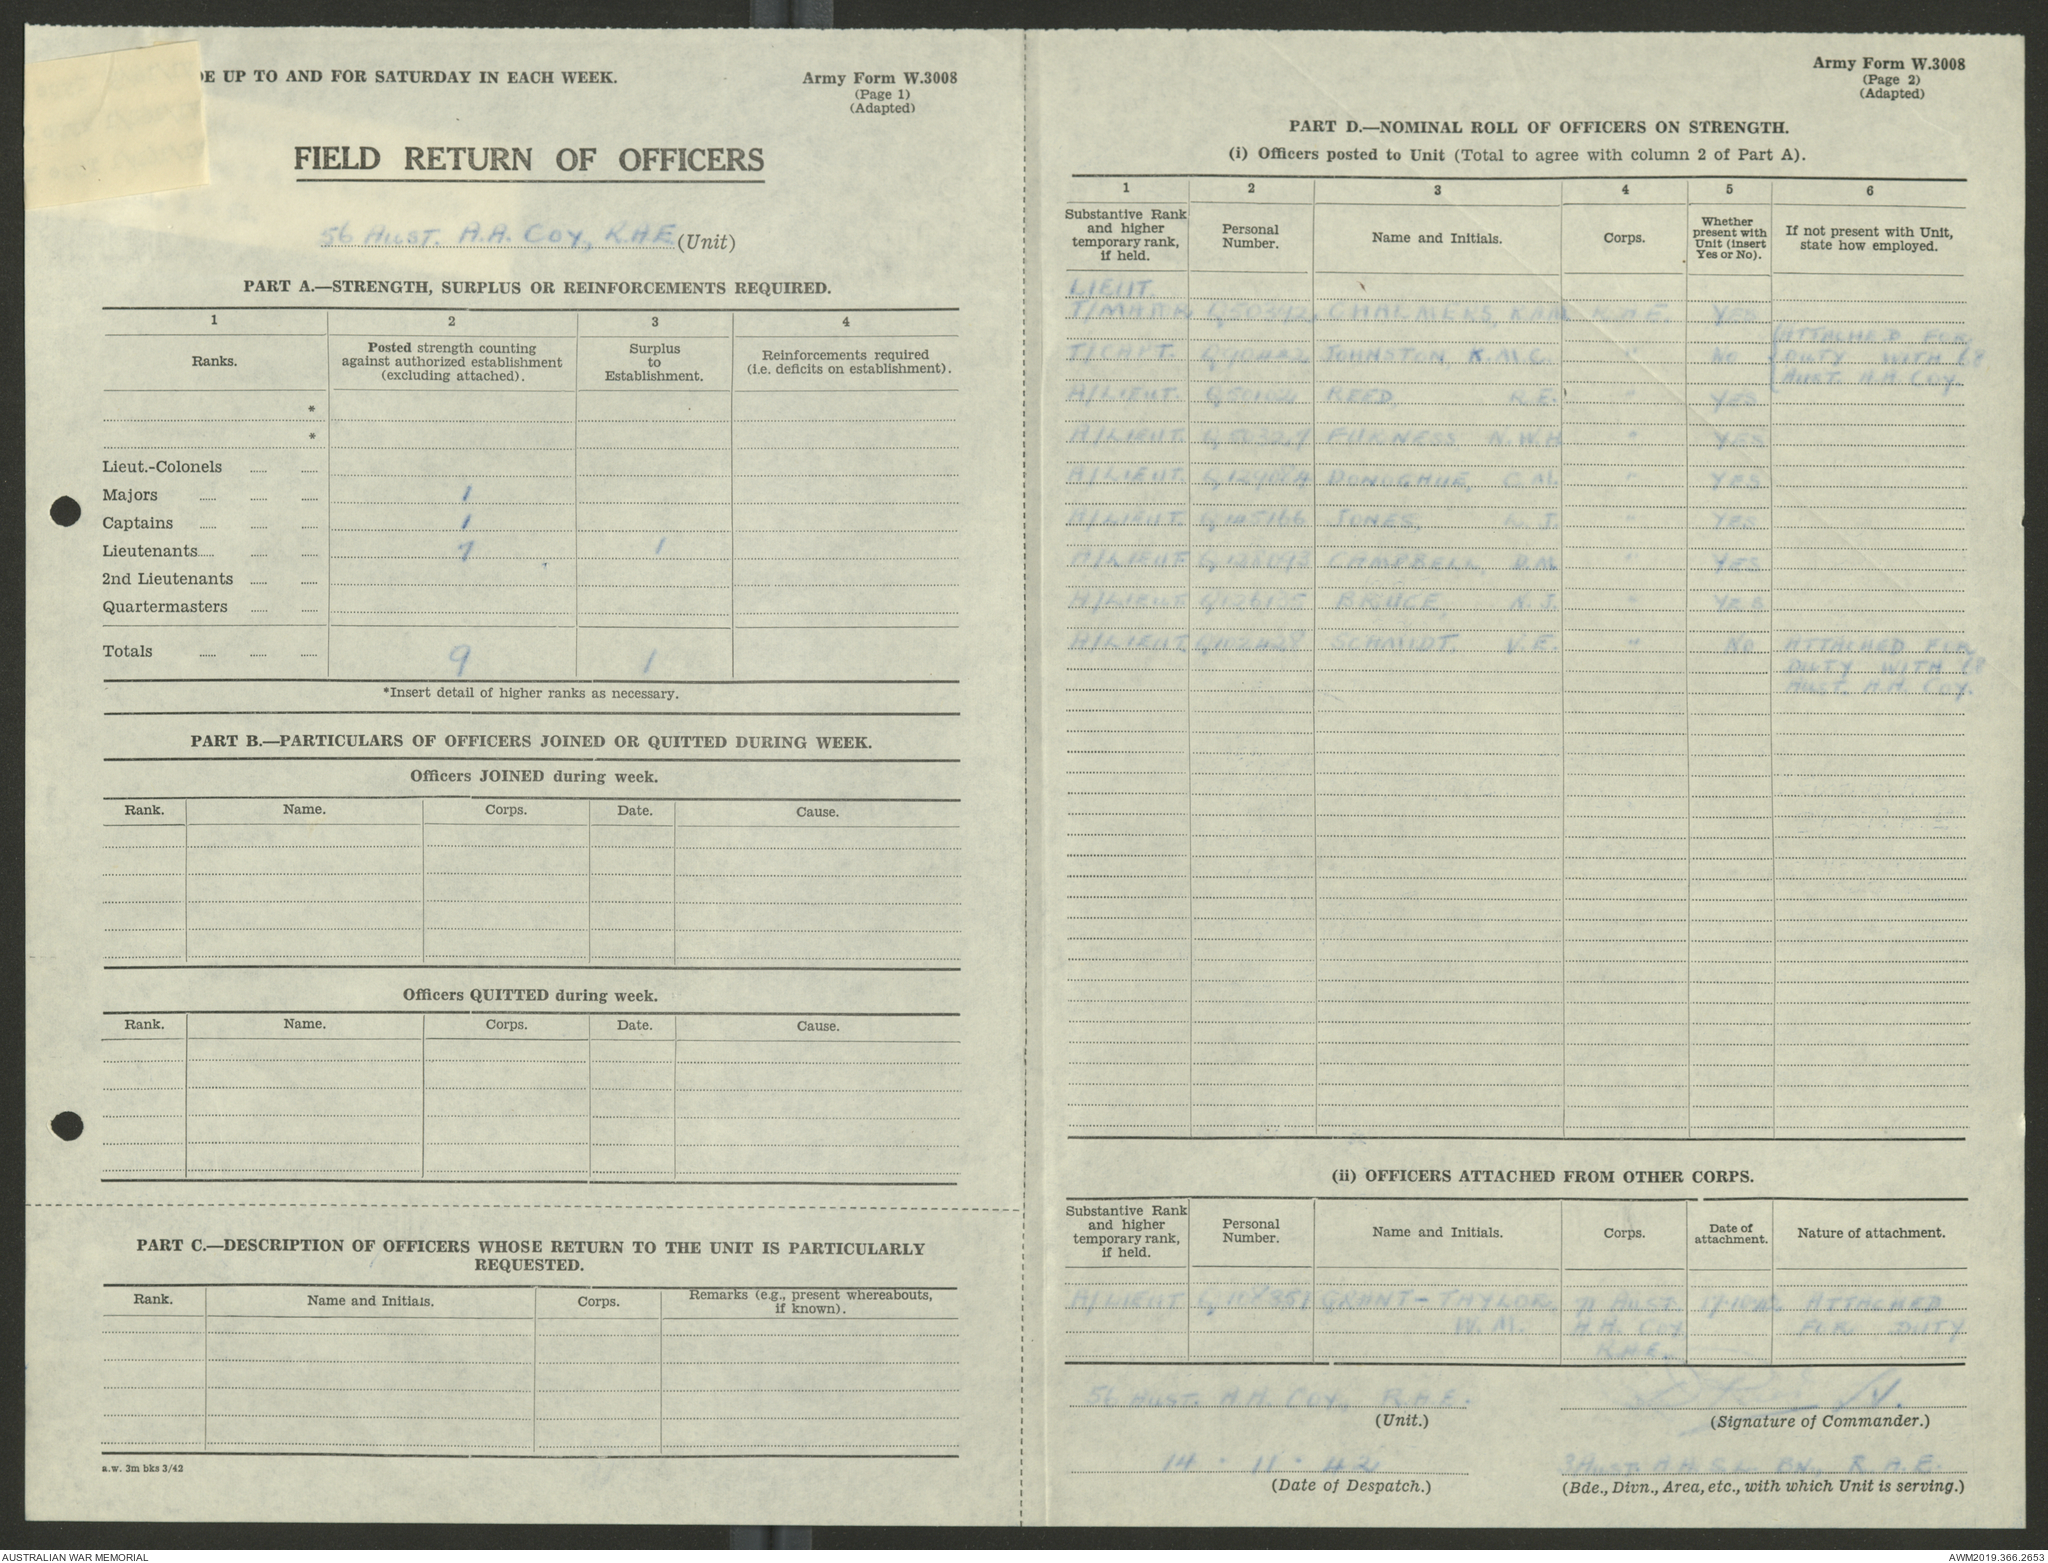 DE UP TO AND FOR SATURDAY IN EACH WEEK.
Army Form W.3008
(Page 1)
(Adapted)
FIELD RETURN OF OFFICERS
56 AUST. A.A. COY, R.A.E. (Unit)
PART A.—STRENGTH, SURPLUS OR REINFORCEMENTS REQUIRED.
1 2 3 4
Ranks. Posted strength counting against authorized establishment (excluding attached). Surplus to Establishment. Reinforcements required (i.e. deficits on establishment).
*
*
Lieut.-Colonels
Majors 1
Captains 1
Lieutenants 7 1
2nd Lieutenants
Quartermasters
Totals 9 1
*Insert detail of higher ranks as necessary.
PART B.—PARTICULARS OF OFFICERS JOINED OR QUITTED DURING WEEK.
Officers JOINED during week.
Rank. Name. Corps. Date. Cause.
Officers QUITTED during week.
Rank. Name. Corps. Date. Cause.
PART C.—DESCRIPTION OF OFFICERS WHOSE RETURN TO THE UNIT IS PARTICULARLY
REQUESTED.
Rank. Name and Initials. Corps. Remarks (e.g., present whereabouts, if known).
a.w. 3m bks 3/42
Army Form W.3008
(Page 2)
(Adapted)
PART D.—NOMINAL ROLL OF OFFICERS ON STRENGTH.
(i) Officers posted to Unit (Total to agree with column 2 of Part A).
1 2 3 4 5 6
Substantive Rank and higher temporary rank, if held. Personal Number. Name and Initials. Corps. Whether present with Unit (insert Yes or No). If not present with Unit, state how employed.
LIEUT.
CHALMERS, R.A.E. YES
T/CAPT. JOHNSTON, K.M.C. " NO ATTACHED FOR
DUTY WITH 68
AUST. A.A. COY.
A/LIEUT. REED R.E. " YES
A/LIEUT. FURNESS N.W.H. " YES
A/LIEUT. DONOGHUE, C.M. " YES
A/LIEUT. JONES, J. " YES
A/LIEUT. CAMPBELL, D.M. " YES
A/LIEUT. BRUCE, J. " YES
A/LIEUT. SCHMIDT. V.E. " NO ATTACHED FOR
DUTY WITH 68
AUST. A.A. COY.
(ii) OFFICERS ATTACHED FROM OTHER CORPS.
Substantive Rank and higher temporary rank, if held. Personal Number. Name and Initials. Corps. Date of attachment. Nature of attachment.
A/LIEUT. GRANT-TAYLOR, 71 AUST. ATTACHED
W.M. A.A. COY FOR DUTY
R.A.E.
56 AUST. A.A. COY, R.A.E.
(Unit.) (Signature of Commander.)
14 · 11 · 42 3 AUST. A.A. S.L. BN., R.A.E.
(Date of Despatch.) (Bde., Divn., Area, etc., with which Unit is serving.)
AUSTRALIAN WAR MEMORIAL AWM2019.366.2653